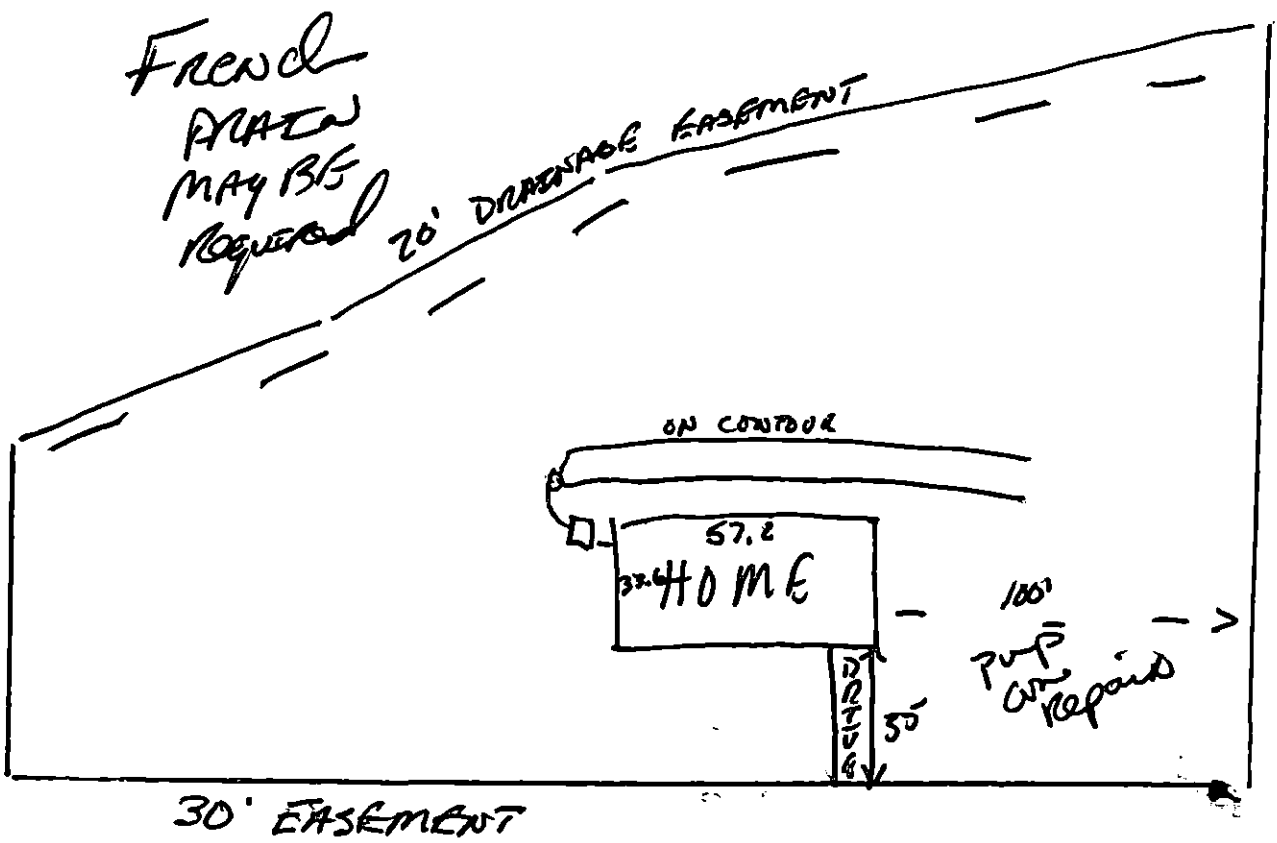 French
DRAIN
MAY BE
Required
20' DRAINAGE EASEMENT
ON CONTOUR
57.2
HOME
100'
pump
on
Repair
DRIVE
30' EASEMENT